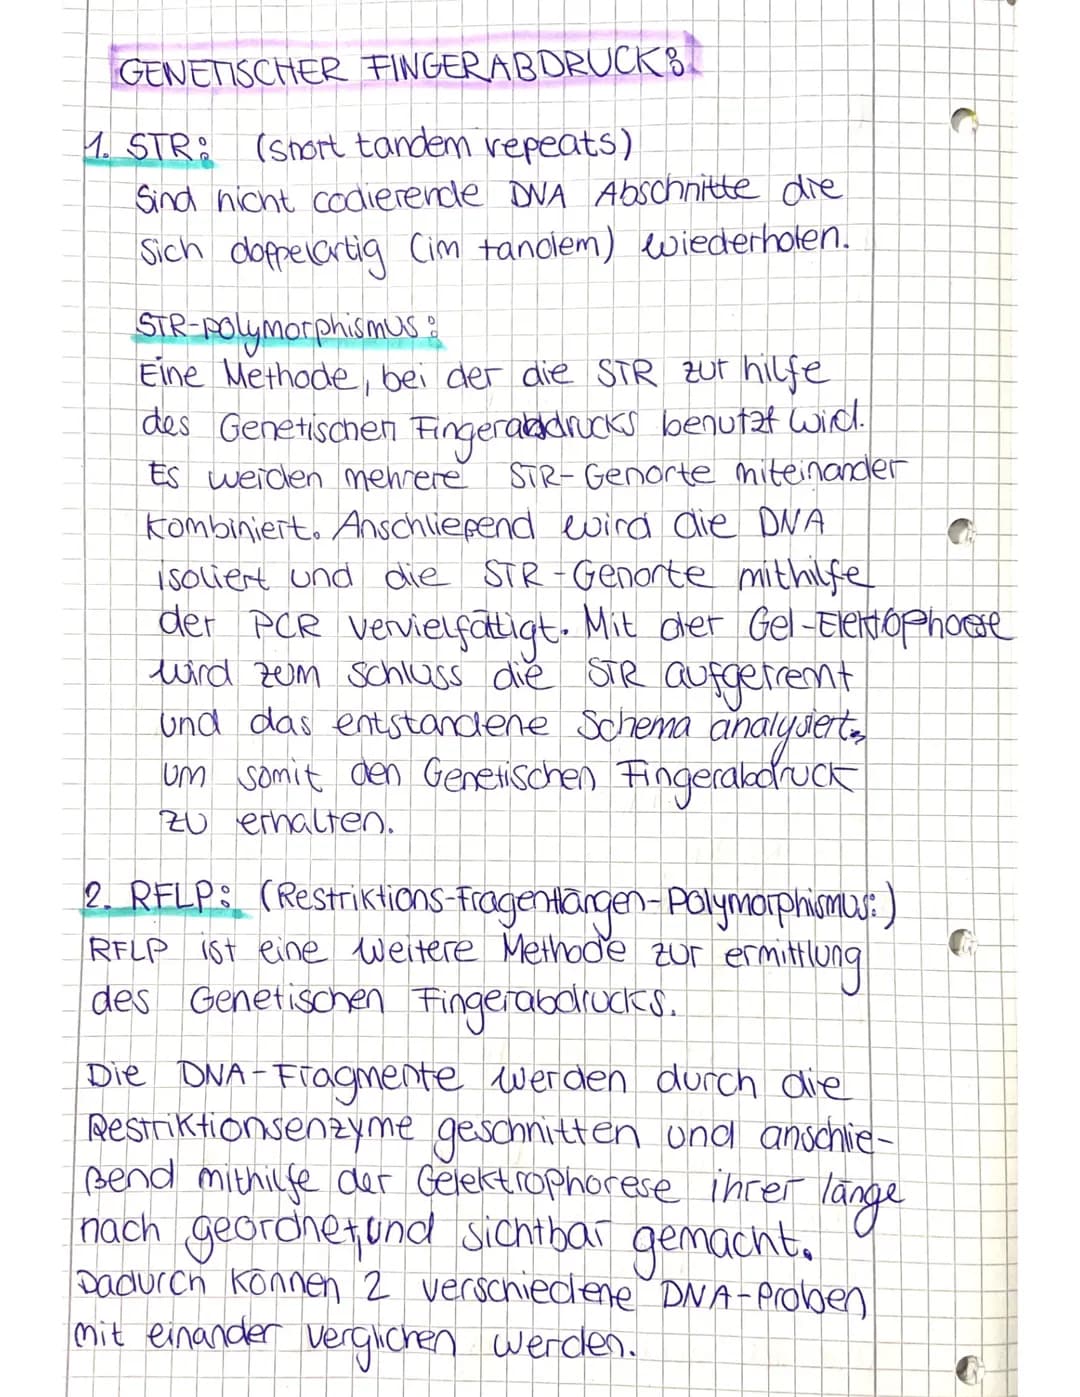 GENETISCHER FINGERABDRUCK:
1. STR: (short tandem repeats)
Sind nicht codierende DNA Abschnitte die
sich doppelartig (im tandem) wiederholen.
STR-polymorphismus:
Eine Methode, bei der die STR zur hilfe
des Genetischen Fingerabdrucks benutzt wird.
Es werden mehrere STR-Genorte miteinander
kombiniert. Anschließend wird die DNA
isoliert und die STR-Genorte mithilfe
der PCR vervielfältigt. Mit der Gel-Elektophorese
wird zum schluss die STR aufgetrennt
und das entstandene Schema analysiert,
um somit den Genetischen Fingerabdruck
zu erhalten.
2. RFLP: (Restriktions-Fragentlängen-Polymorphismus:)
RFLP ist eine weitere Methode zur ermittlung
des Genetischen Fingerabdrucks.
Die DNA-Fragmente werden durch die
Restriktionsenzyme geschnitten und anschlie-
ßend mithilfe der Gelektrophorese ihrer länge
nach geordnet, und sichtbar gemacht.
Dadurch können 2 verschiedene DNA-Proben
mit einander verglichen werden.